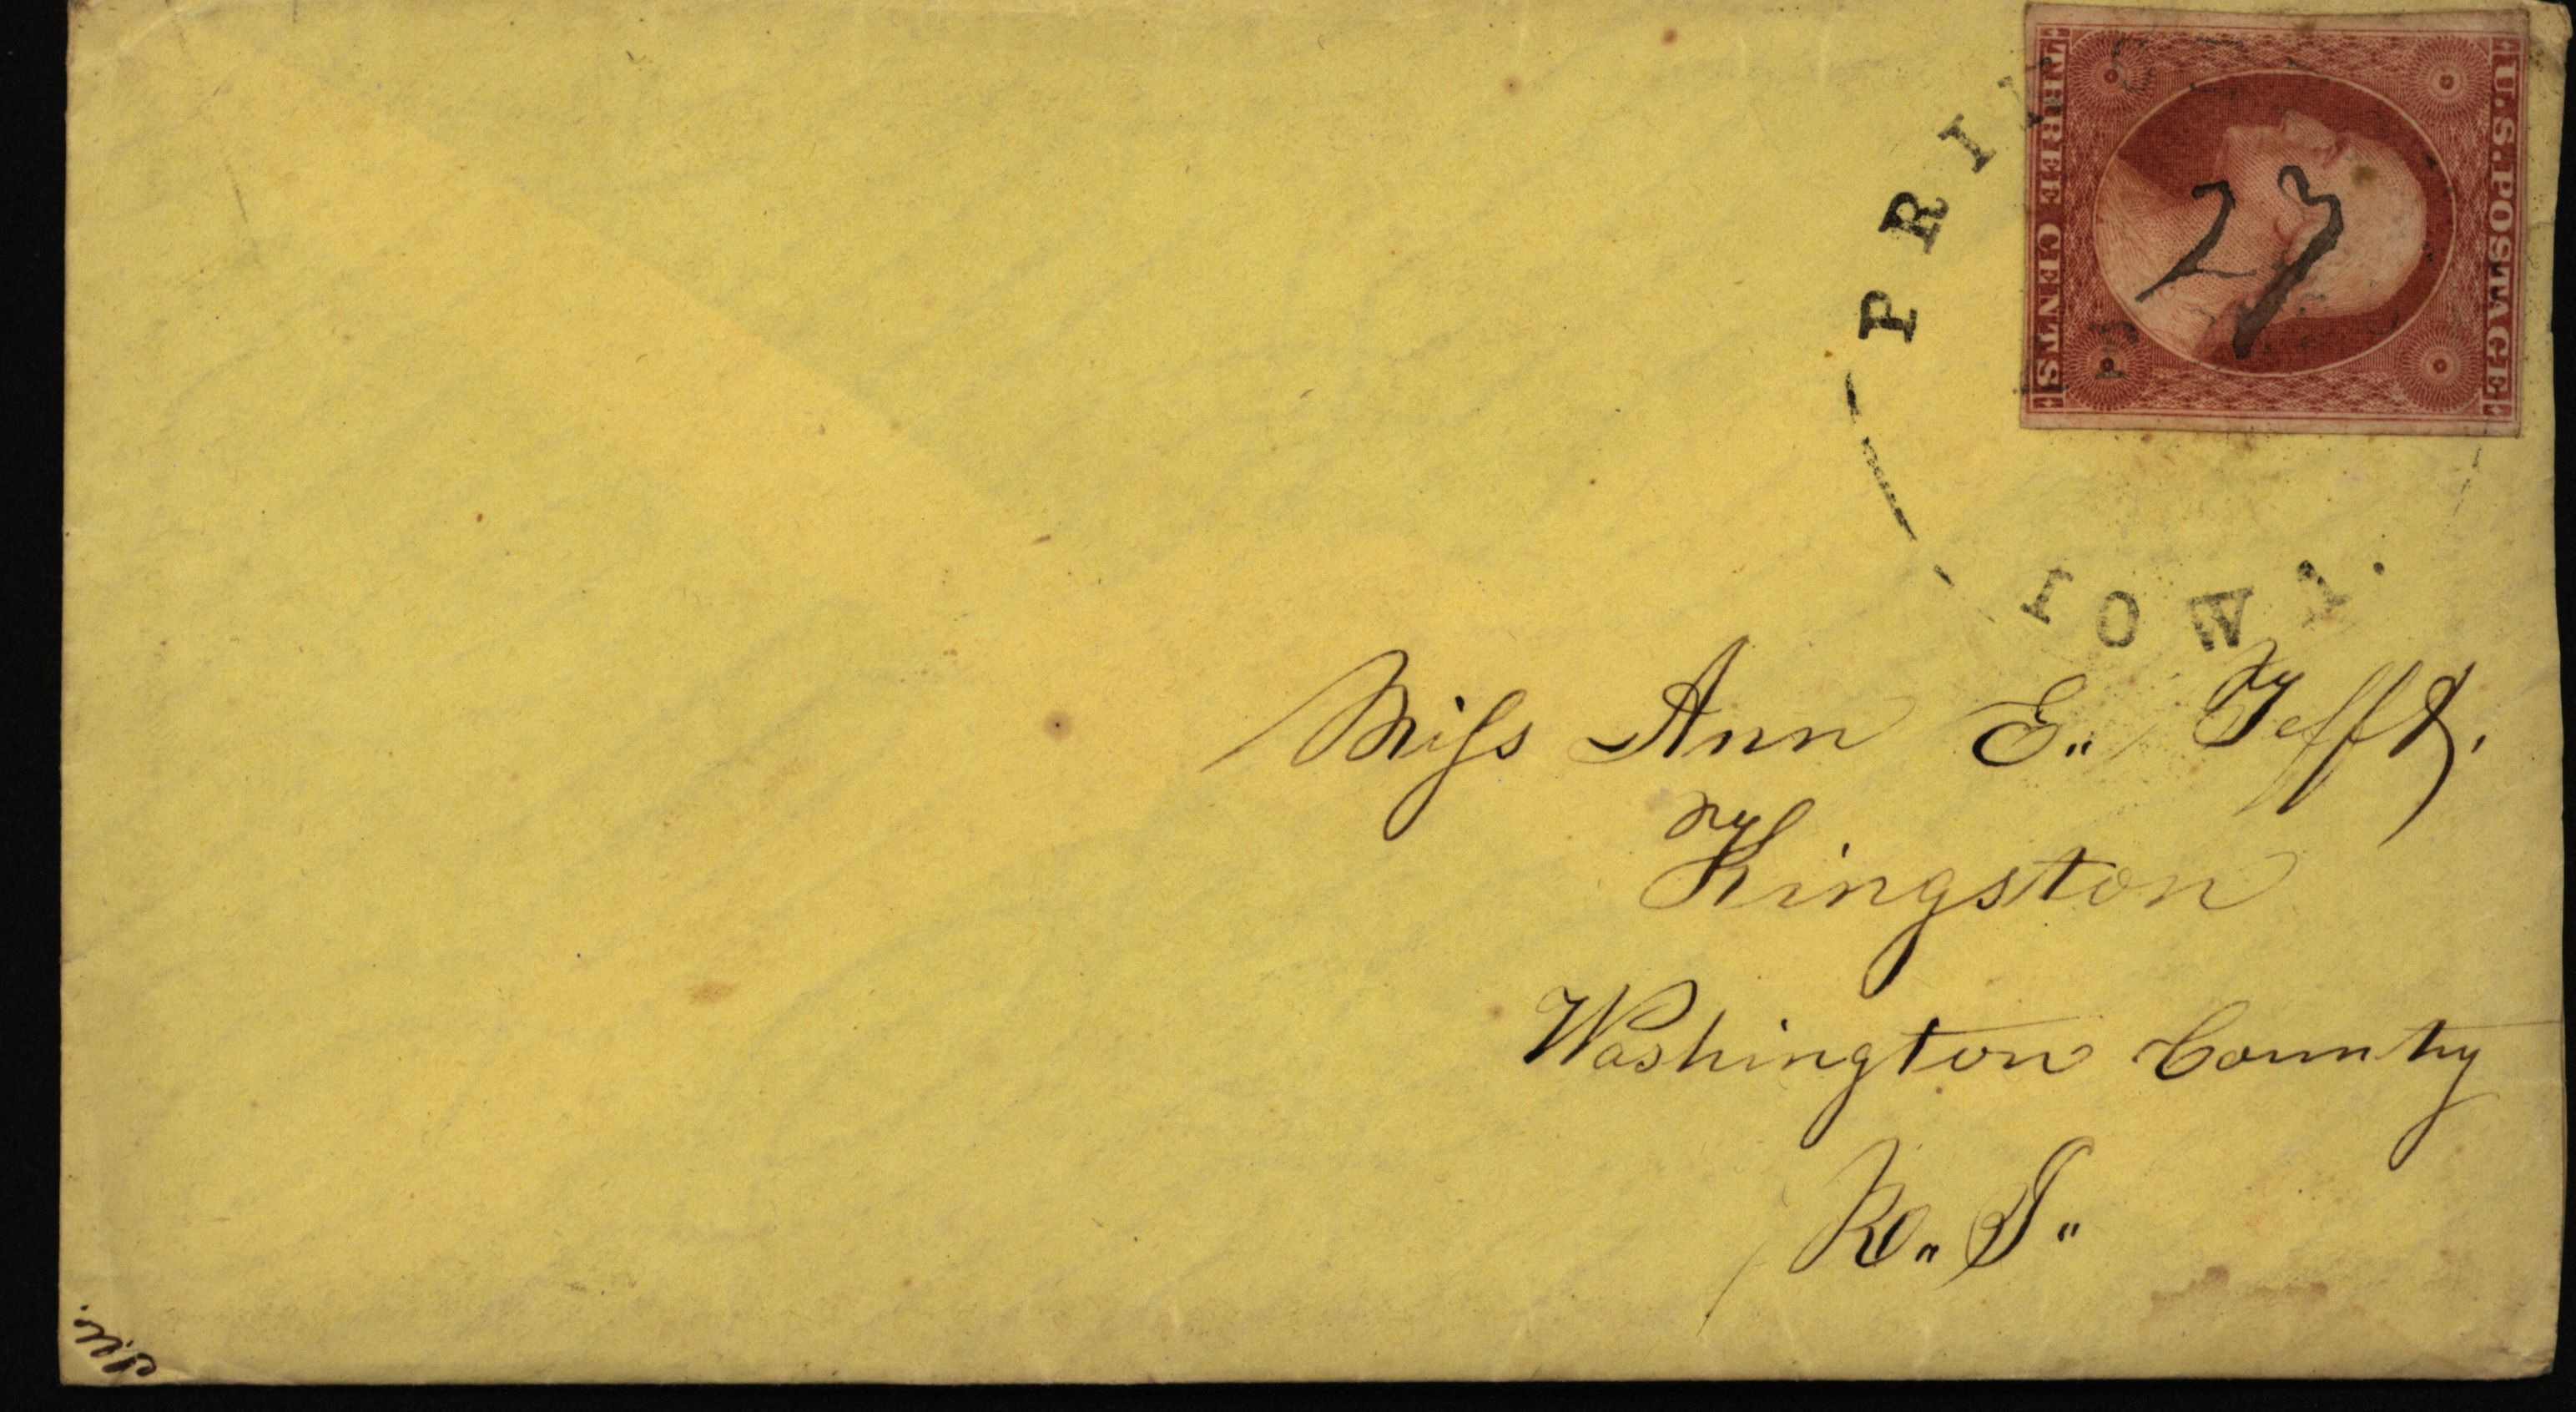 U.S. POSTAGE
THREE CENTS
27
IOWA.
Miss Ann E. Tefft.
Kingston
Washington County
R. I.